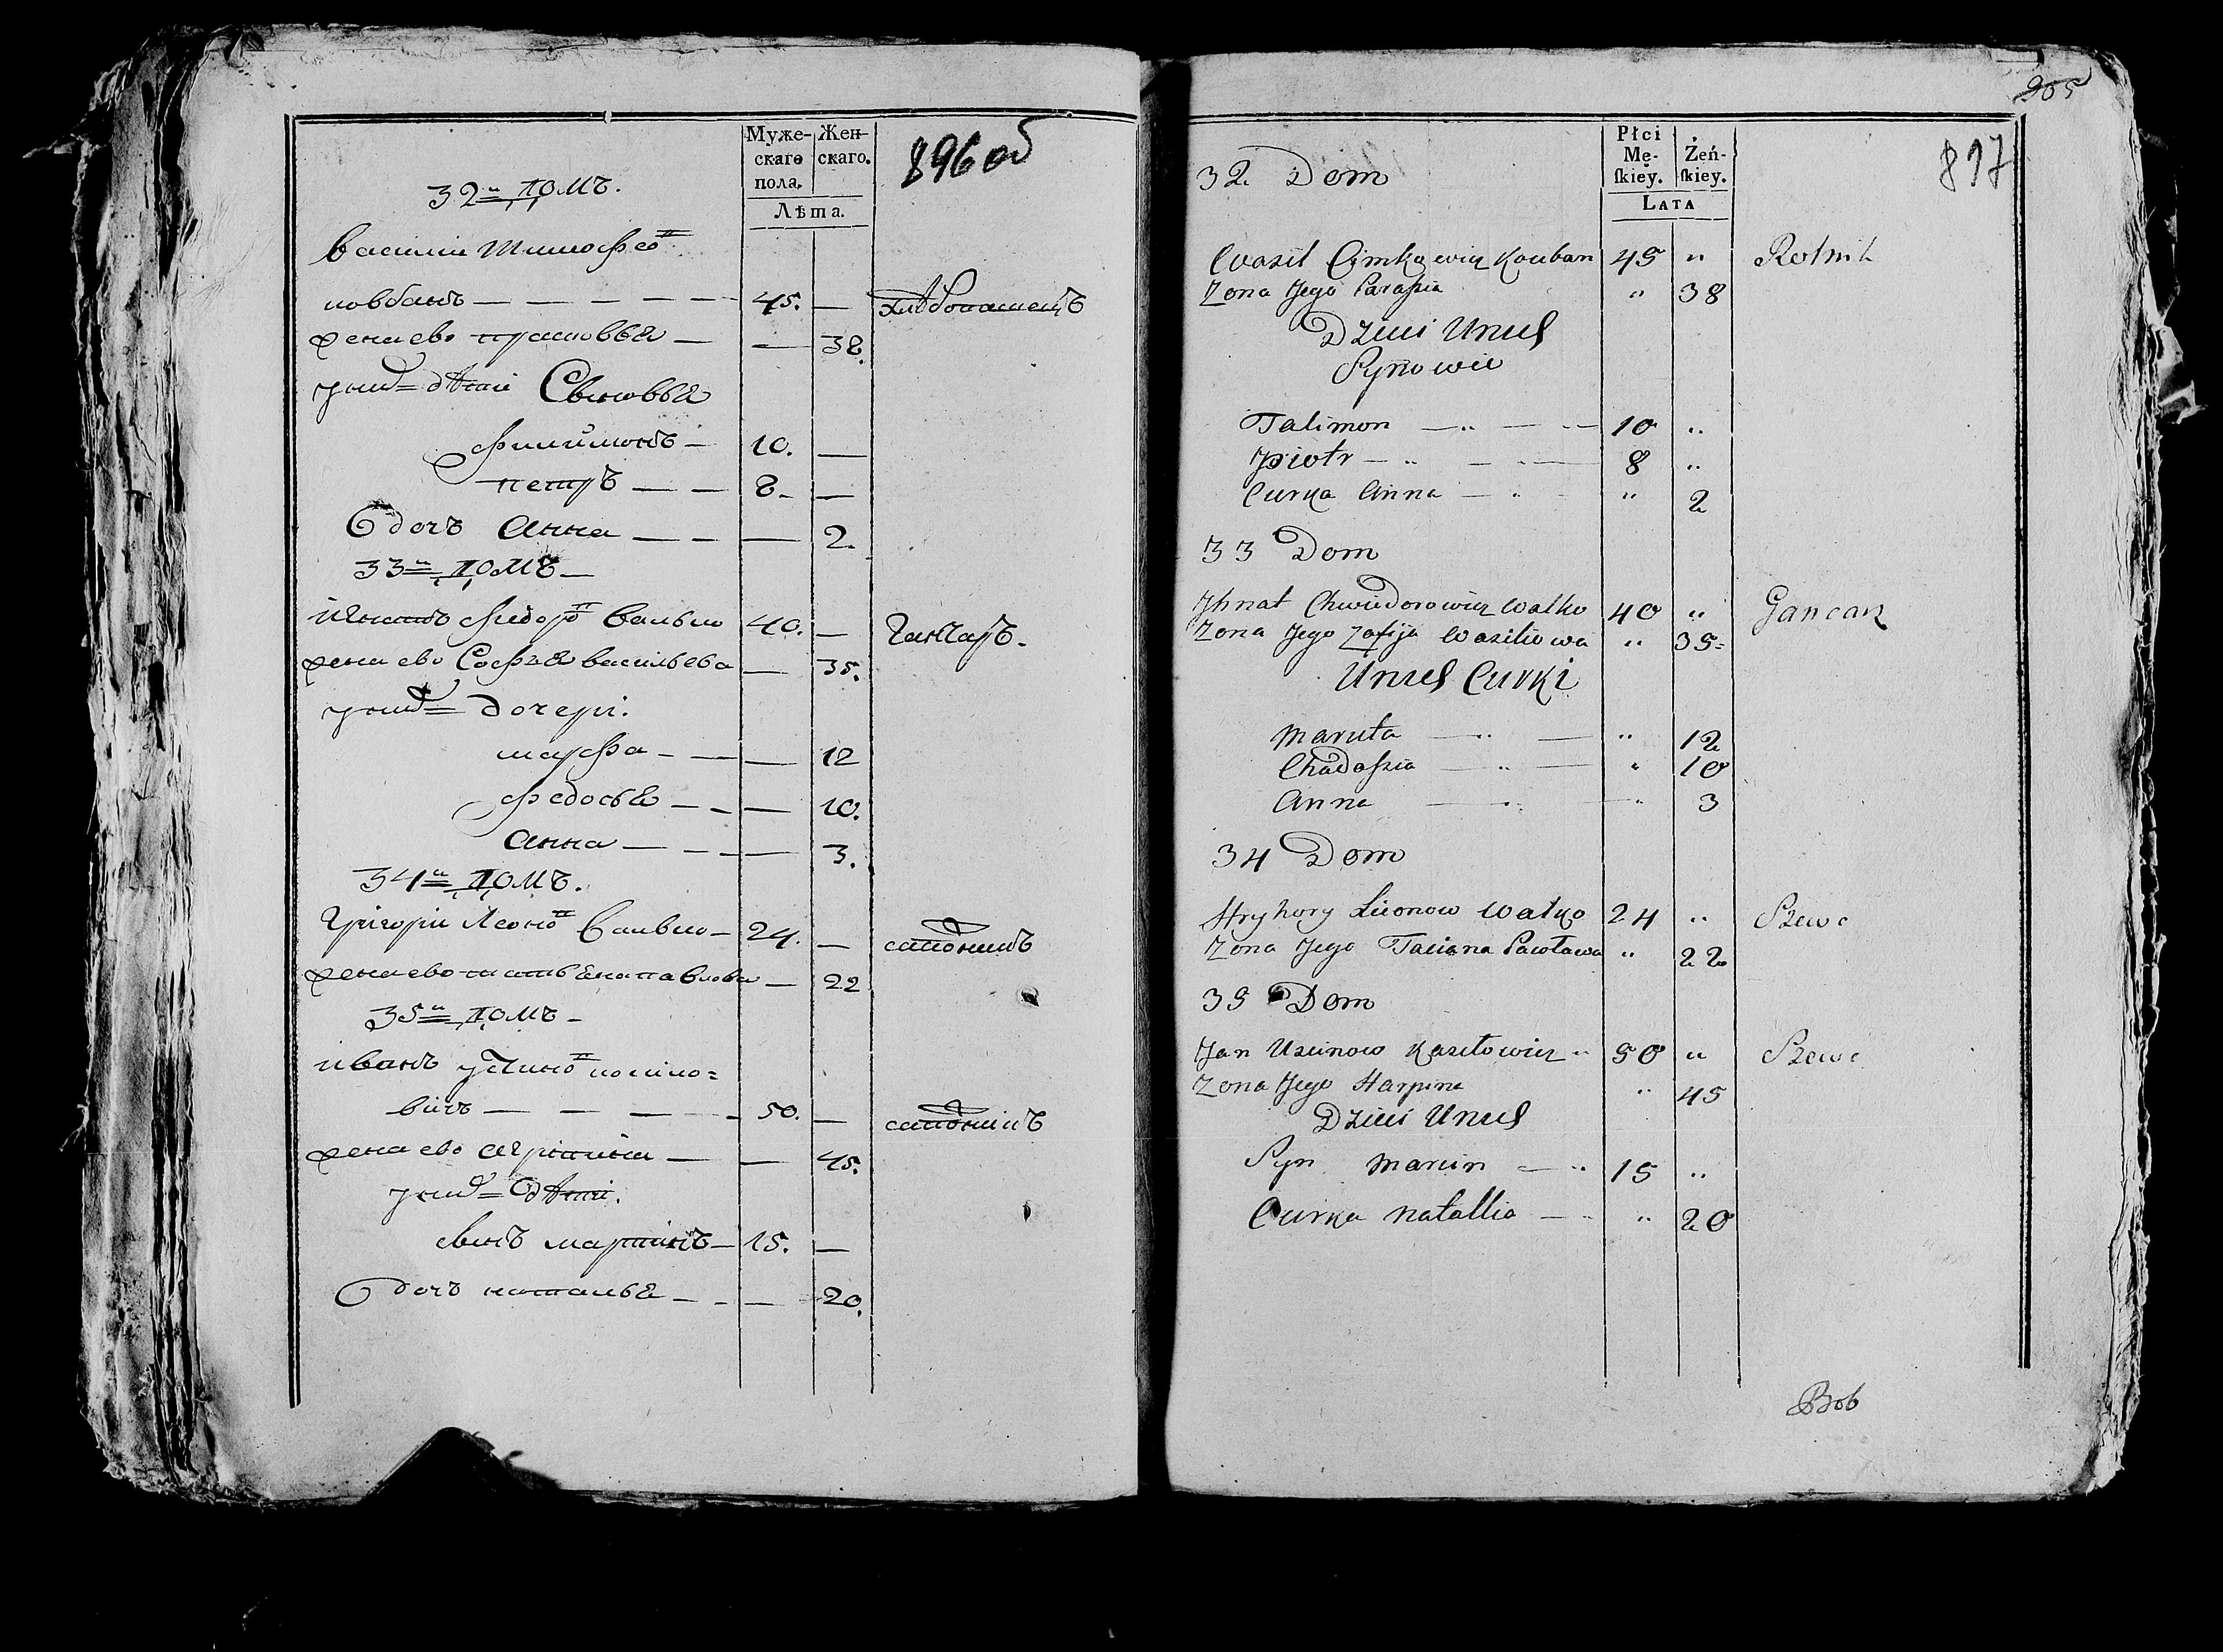 Муже-
скаго
пола.
Жен-
скаго.
Лѣта.
896 об
32й домъ.
Василий Тимофео
ковбанъ — 45. — хлѣбопашецъ
жена ево прасковья — — 38.
у нихъ дѣти Сыновья
филимонъ — 10. —
петръ — 8 —
Дочь Анна — — 2.
33й домъ —
Игнатъ Федоро Валько 40. — Ганчаръ.
жена ево Софья васильева — 35.
у нихъ дочери.
марфа — — 12
федосья — — 10.
Анна — — 3.
34й домъ.
Григори Леоно Валько — 24. — сапожникъ
жена ево татьяна павлова — 22
35й домъ —
иванъ устино
вичъ — 50. — сапожникъ
жена ево агрипина — — 45.
у нихъ дѣти.
сынъ мартинъ — 15. —
дочь наталья — — 20.
205
897
Płci
Mę-
skiey.
Żeń-
skiey.
LATA
32 Dom
Wasil Cimkowicz Kouban 45 " Rolnik
Zona Jego Paraszia " 38
Dzieci Unich
Synowie
Talimon — 10 "
Piotr — 8 "
Curka Anna — " 2
33 Dom
Jhnat Chwiedorowicz Walko 40 " Gancarz
Zona Jego Zofija Wasiliowa " 35
Unich Curki
Maruta — " 12
Chadoszia — " 10
Anna — " 3
34 Dom
Hryhory Lieonow Walko 24 " Szewc
Zona Jego Taciana Pawłowa " 22
35 Dom
Jan Uscinow Kozłowicz " 50 " Szewc
Zona Jego Harpina " 45
Dzieci Unich
Syn Marcin — 15 "
Curka Natallia — " 20